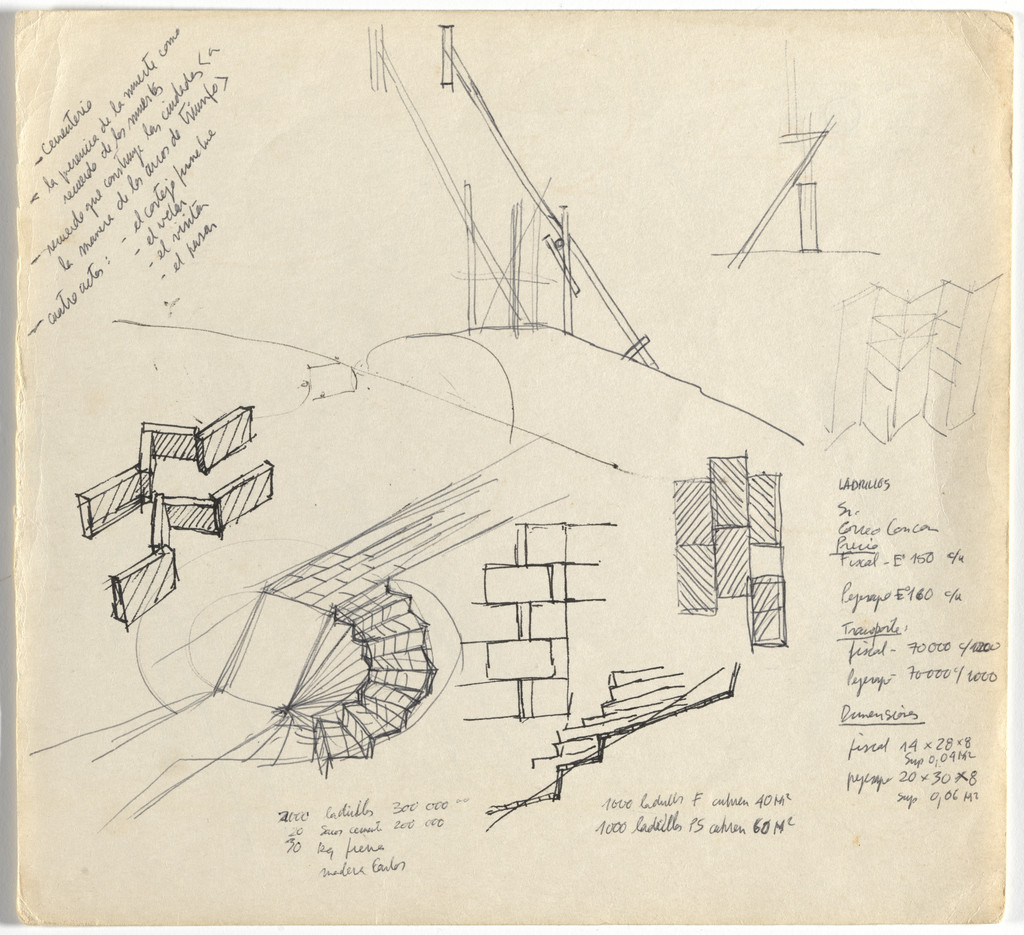 - cementerio
- la presencia de la muerte como
recuerdo de los muertos
- recuerdo que construye las ciudades <a
la manera de los arcos de triunfo>
- cuatro actos:
- el cortejo funebre
- el velar
- el visitar
- el pasar
LADRILLOS
Sr.
Correo Concon
Precio
Fiscal - Eº 150 c/u
Pejesapo Eº 160 c/u
Transporte:
fiscal - 70000 c/1200
Pejesapo 70000 c/1000
Dimensiones
fiscal 14 x 28 x 8
Sup 0,04 M²
pejesapo 20 x 30 x 8
sup. 0,06 M²
2000 ladrillos 300 000 oo
20 sacos cemento 200 000
30 kg fierro
madera Carlos
1000 ladrillos F cubren 40 M²
1000 ladrillos PS cubren 60 M²